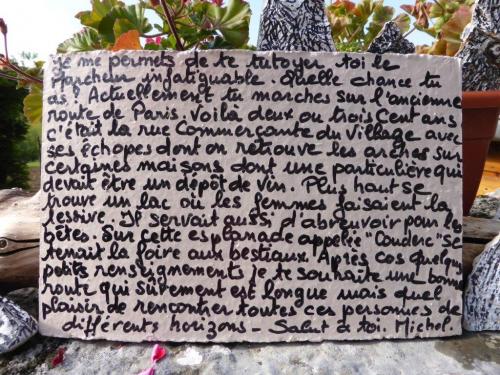 je me permets de te tutoyer toi le
marcheur infatiguable. Quelle chance tu
as! Actuellement tu marches sur l'ancienne
route de Paris. Voilà deux ou trois cent ans
c'était la rue Commerçante du Village avec
ses échopes dont on retrouve les arches sur
certaines maisons dont une particulière qui
devait être un dépôt de vin. Plus haut se
trouve un lac où les femmes faisaient la
lessive. Il servait aussi d'abreuvoir pour les
bêtes. Sur cette esplanade appelée "Couderc" se
tenait la foire aux bestiaux. Après ces quelques
petits renseignements je te souhaite une bonne
route qui sûrement est longue mais quel
plaisir de rencontrer toutes ces personnes de
différents horizons - Salut à toi. Michel.